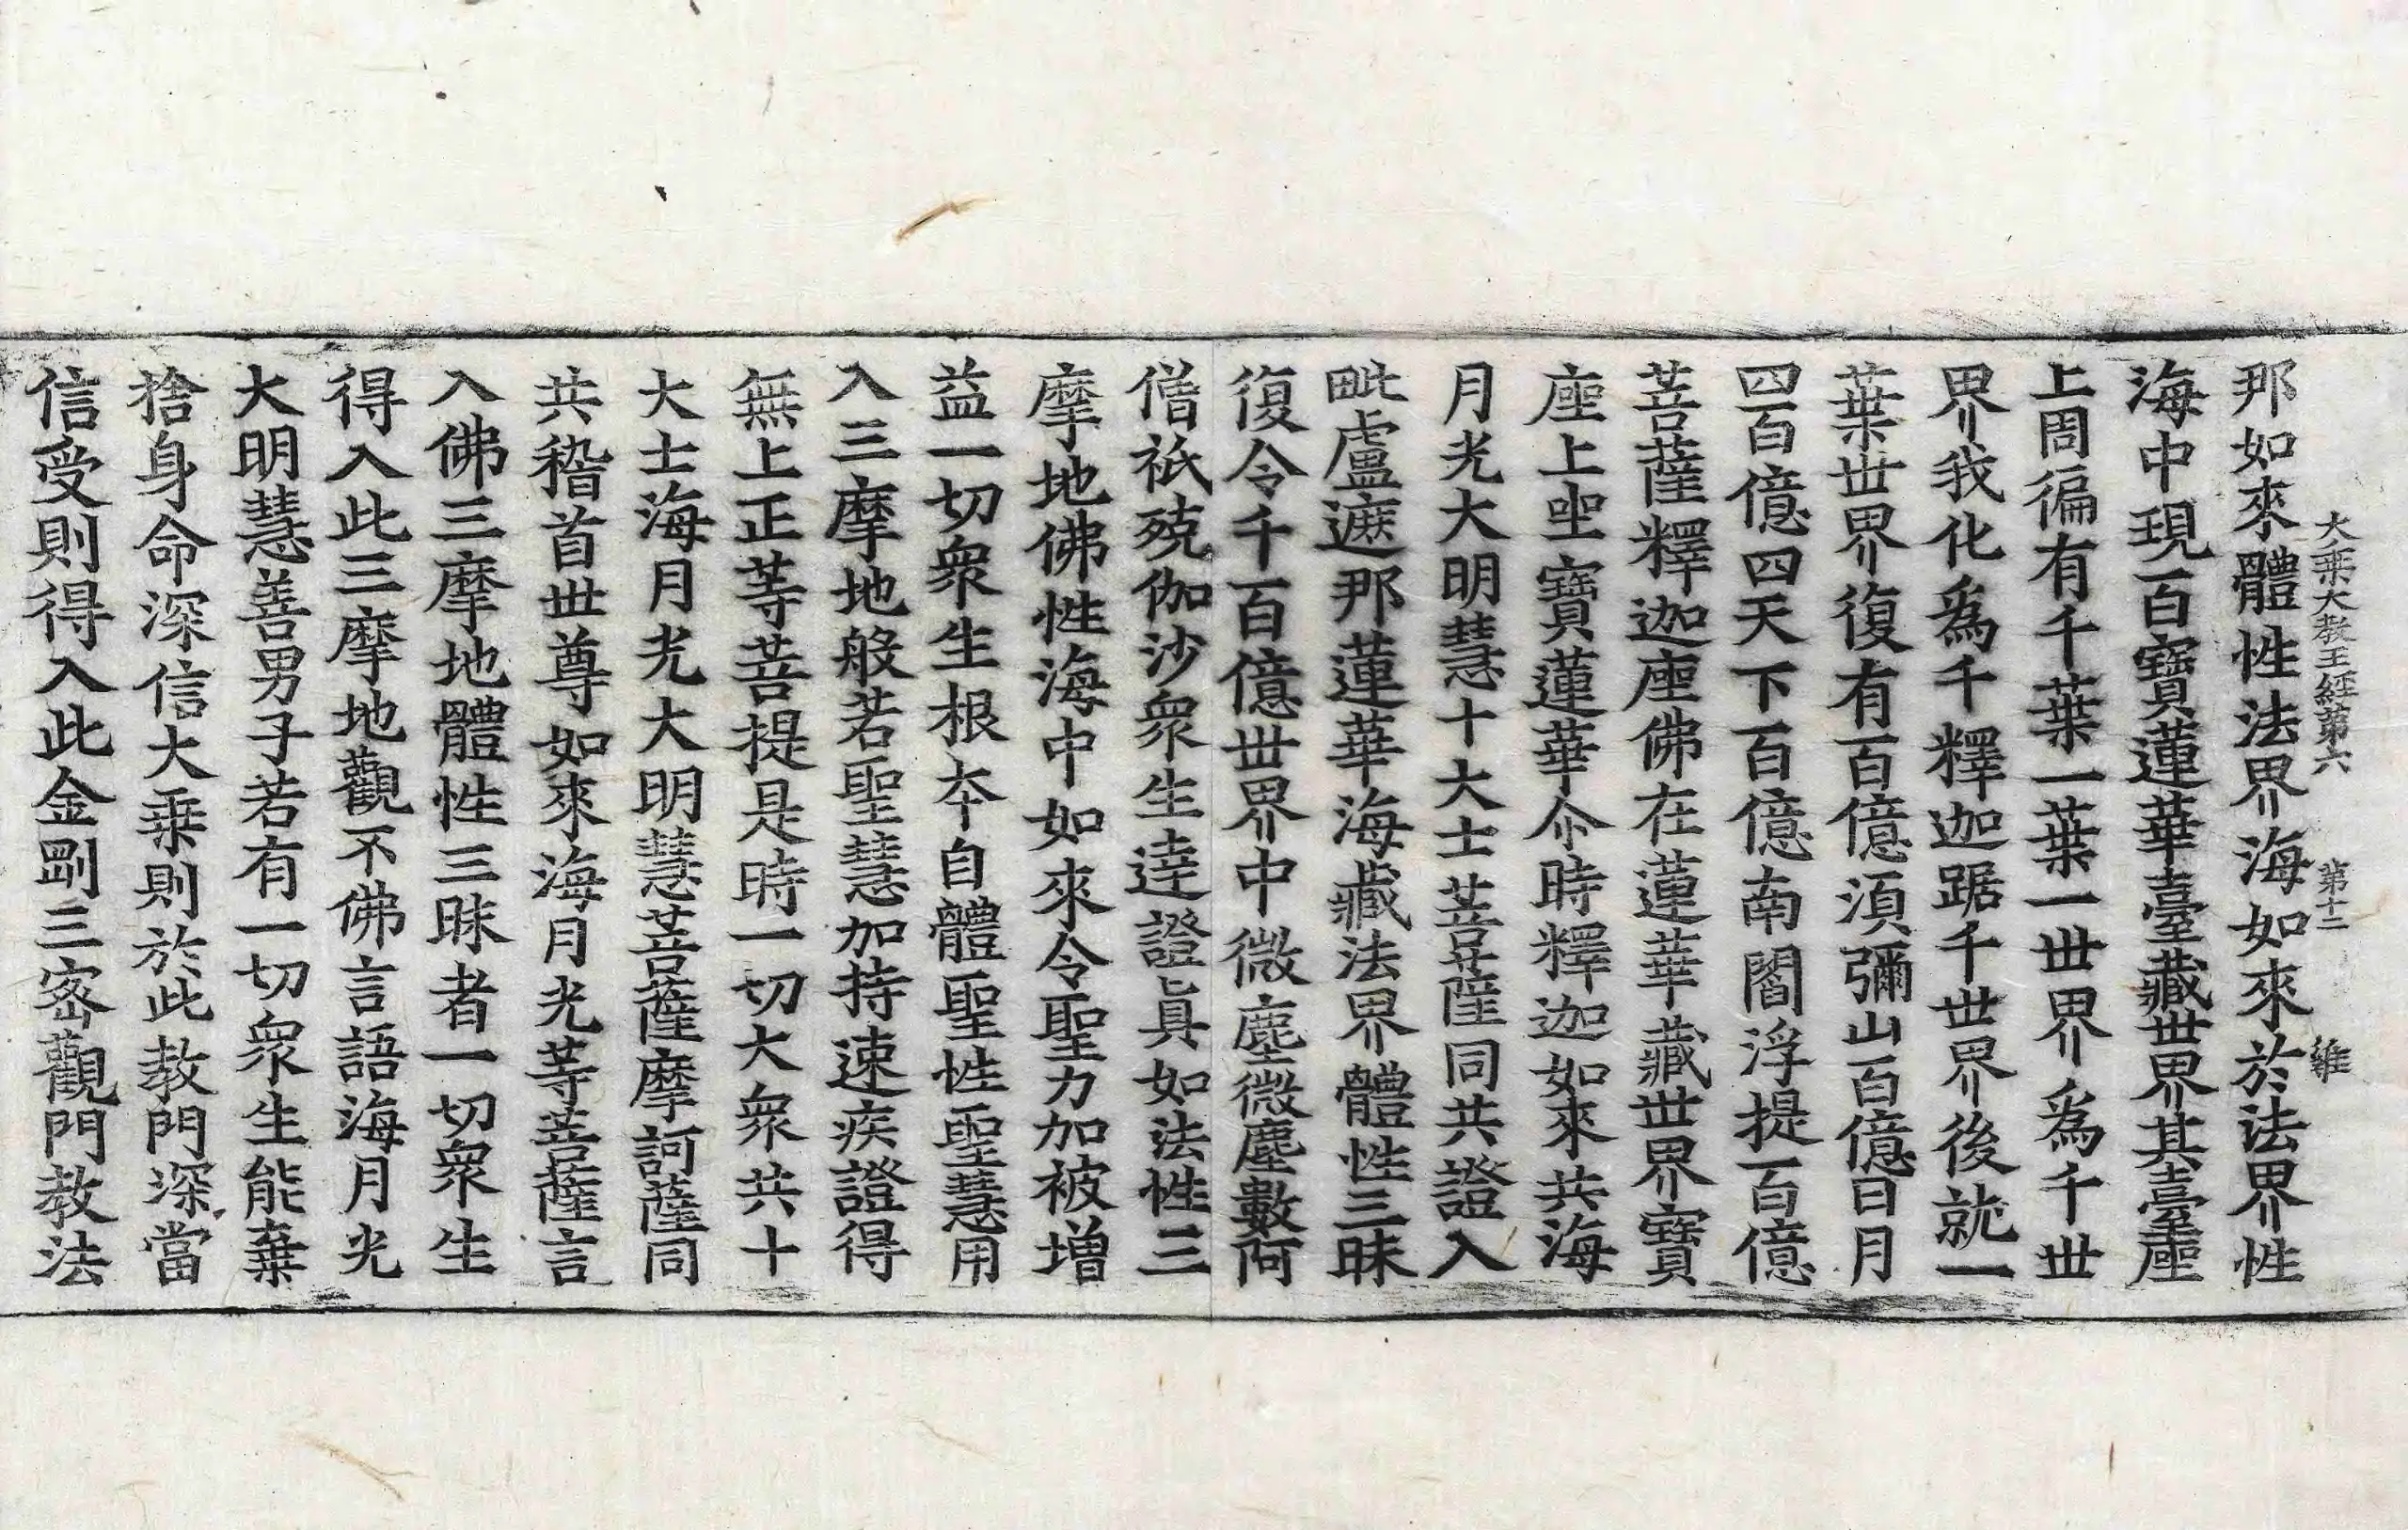 大乗大教王經第六 第十二 維
那如來體性法界海如來於法界性
海中現百寶蓮華臺藏世界其臺座
上周徧有千葉一葉一世界為千世
界我化為千釋迦踞千世界後就一
葉世界復有百億湏彌山百億日月
四百億四天下百億南閻浮提百億
菩薩釋迦座佛在蓮華藏世界寶
座上坐寶蓮華尒時釋迦如來共海
月光大明慧十大士菩薩同共證入
毗盧遮那蓮華海藏法界體性三昧
復令千百億世界中微塵微塵數阿
僧祇殑伽沙衆生逹證真如法性三
摩地佛性海中如來令聖力加被增
益一切衆生根本自體聖性聖慧用
入三摩地般若聖慧加持速疾證得
無上正等菩提是時一切大衆共十
大士海月光大明慧菩薩摩訶薩同
共稽首世尊如來海月光等菩薩言
入佛三摩地體性三昧者一切衆生
得入此三摩地觀不佛言語海月光
大明慧善男子若有一切衆生能棄
捨身命深信大乗則於此教門深當
信受則得入此金剛三密觀門教法